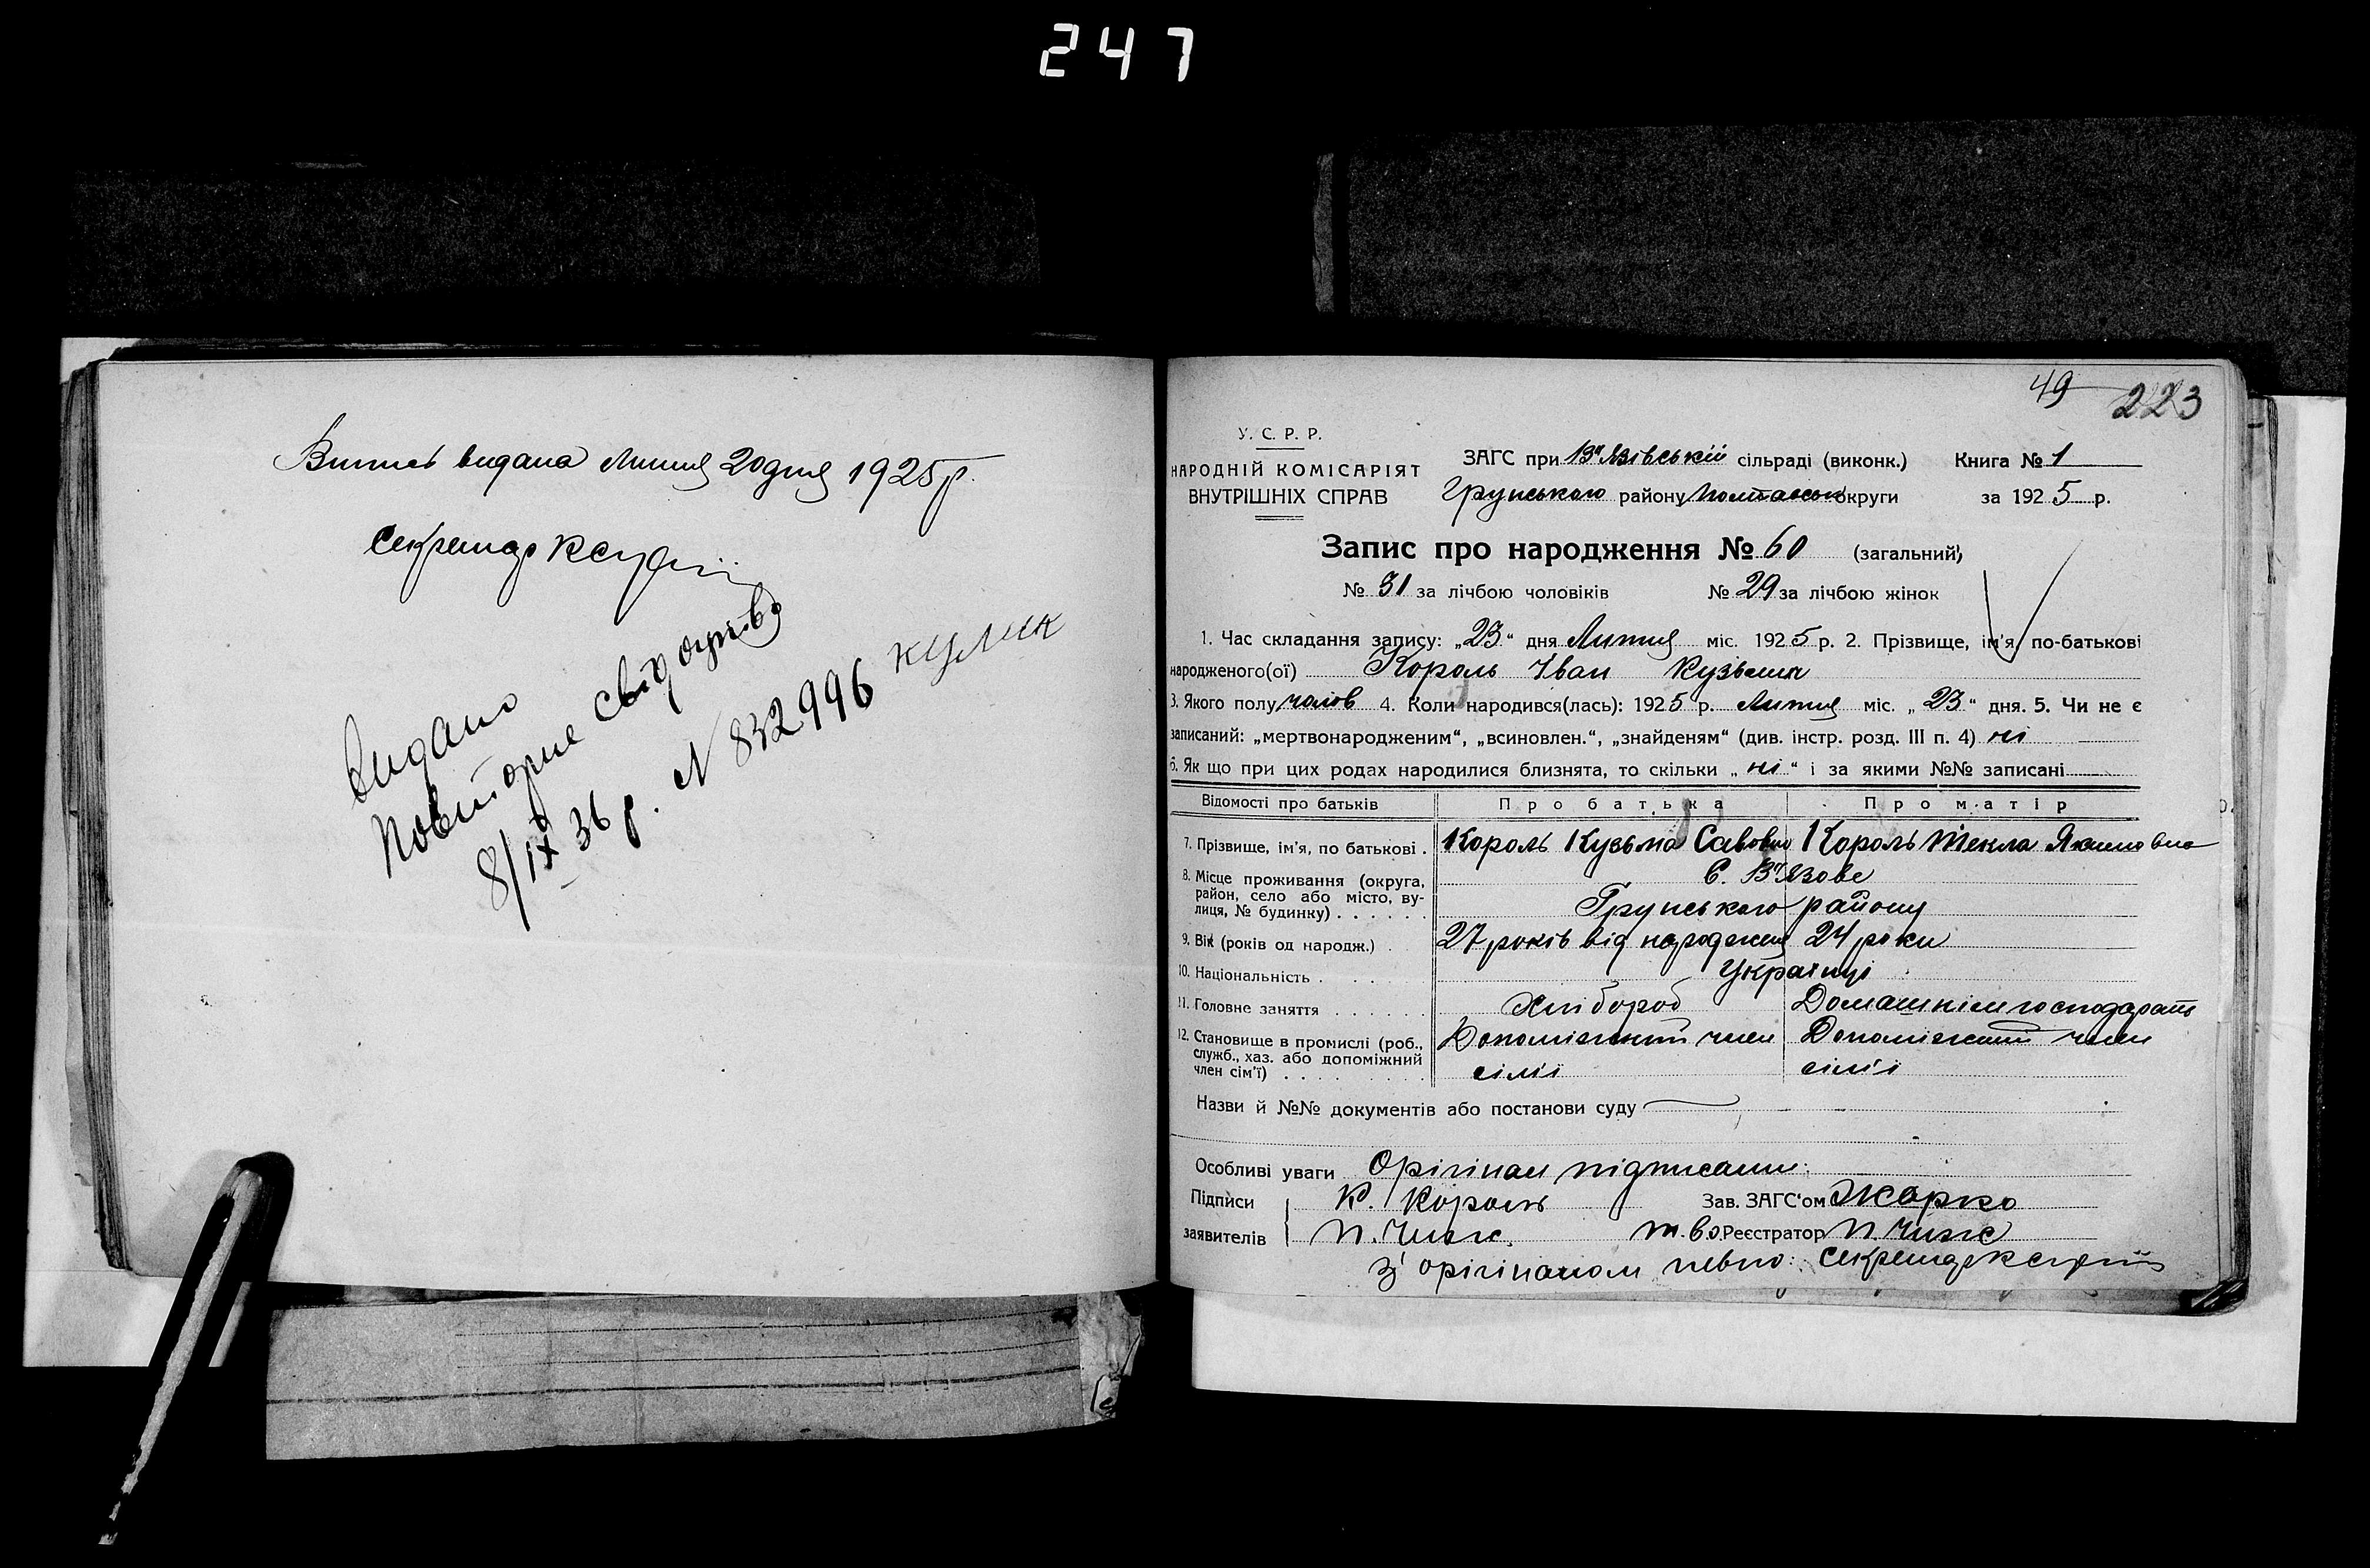 247
Випись видана Липня 20 дня 1925 р.
Секретар
Видано
повторне свідоцтво
8/IX 36 р. № 832996 Кулик
49 223
У. С. Р. Р.
НАРОДНІЙ КОМІСАРІЯТ
ВНУТРІШНІХ СПРАВ
ЗАГС при В'язівській сільраді (виконк.) Книга № 1
Грунського району Полтавськ округи за 1925 р.
Запис про народження № 60 (загальний)
№ 31 за лічбою чоловіків № 29 за лічбою жінок
1. Час складання запису: „23“ дня Липня міс. 1925 р. 2. Прізвище, ім'я, по-батькові
народженого(ої) Король Іван Кузьмич
3. Якого полу чолов 4. Коли народився(лась): 1925 р. Липня міс. „23“ дня. 5. Чи не є
записаний: „мертвонародженим“, „всиновлен.“, „знайденям“ (див. інстр. розд. III п. 4) ні
6. Як що при цих родах народилися близнята, то скільки „ні“ і за якими №№ записані
Відомості про батьків Про батька Про матір
7. Прізвище, ім'я, по батькові . Король Кузьма Савович Король Текла Якимовна
8. Місце проживання (округа, район, село або місто, вулиця, № будинку) . . . . . . С. В'язове
Грунського району
9. Вік (років од народж.) . 27 років від народження 24 роки
10. Національність . . . . . Українці
11. Головне заняття . . . . . . Хлібороб Домашнім господарств
12. Становище в промислі (роб., служб., хаз. або допоміжний член сім'ї) . . . . . . . . . Допоміжний член Допоміжний член
сім'ї сім'ї
Назви й №№ документів або постанови суду
Особливі уваги Орігінал підписали:
Підписи К. Король Зав. ЗАГС'ом Жарко
заявителів П. Чиж. т.в.о. Реєстратор П. Чиж
Зі орігіналом певно: Секретар